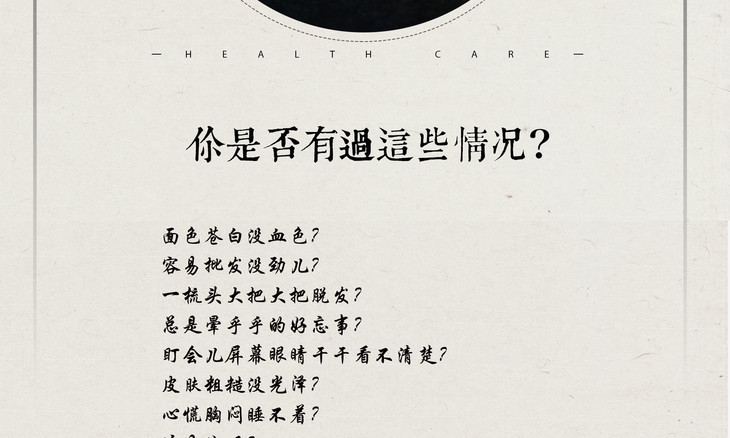 — HEALTH CARE —
你是否有過這些情况?
面色苍白没血色?
容易批发没劲儿?
一梳头大把大把脱发?
总是晕乎乎的好忘事?
盯会儿屏幕眼睛干干看不清楚?
皮肤粗糙没光泽?
心慌胸闷睡不着?